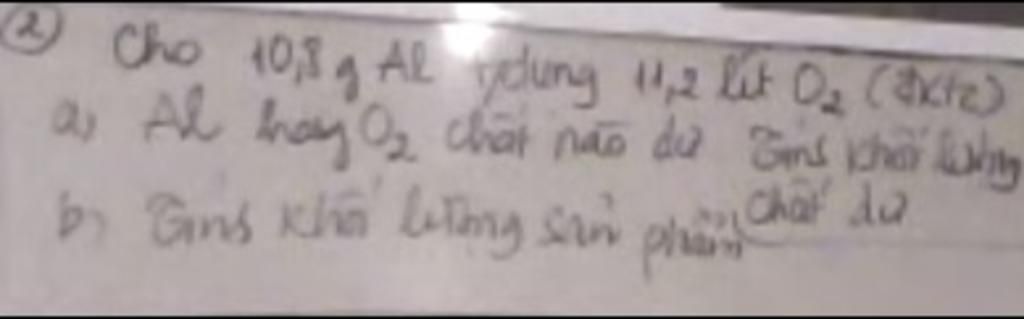 ② Cho 10,8 g Al t/dụng 11,2 lít O₂ (đktc)
a, Al hay O₂ chất nào dư Tính khối lượng
chất dư
b, Tính khối lượng sản phẩm